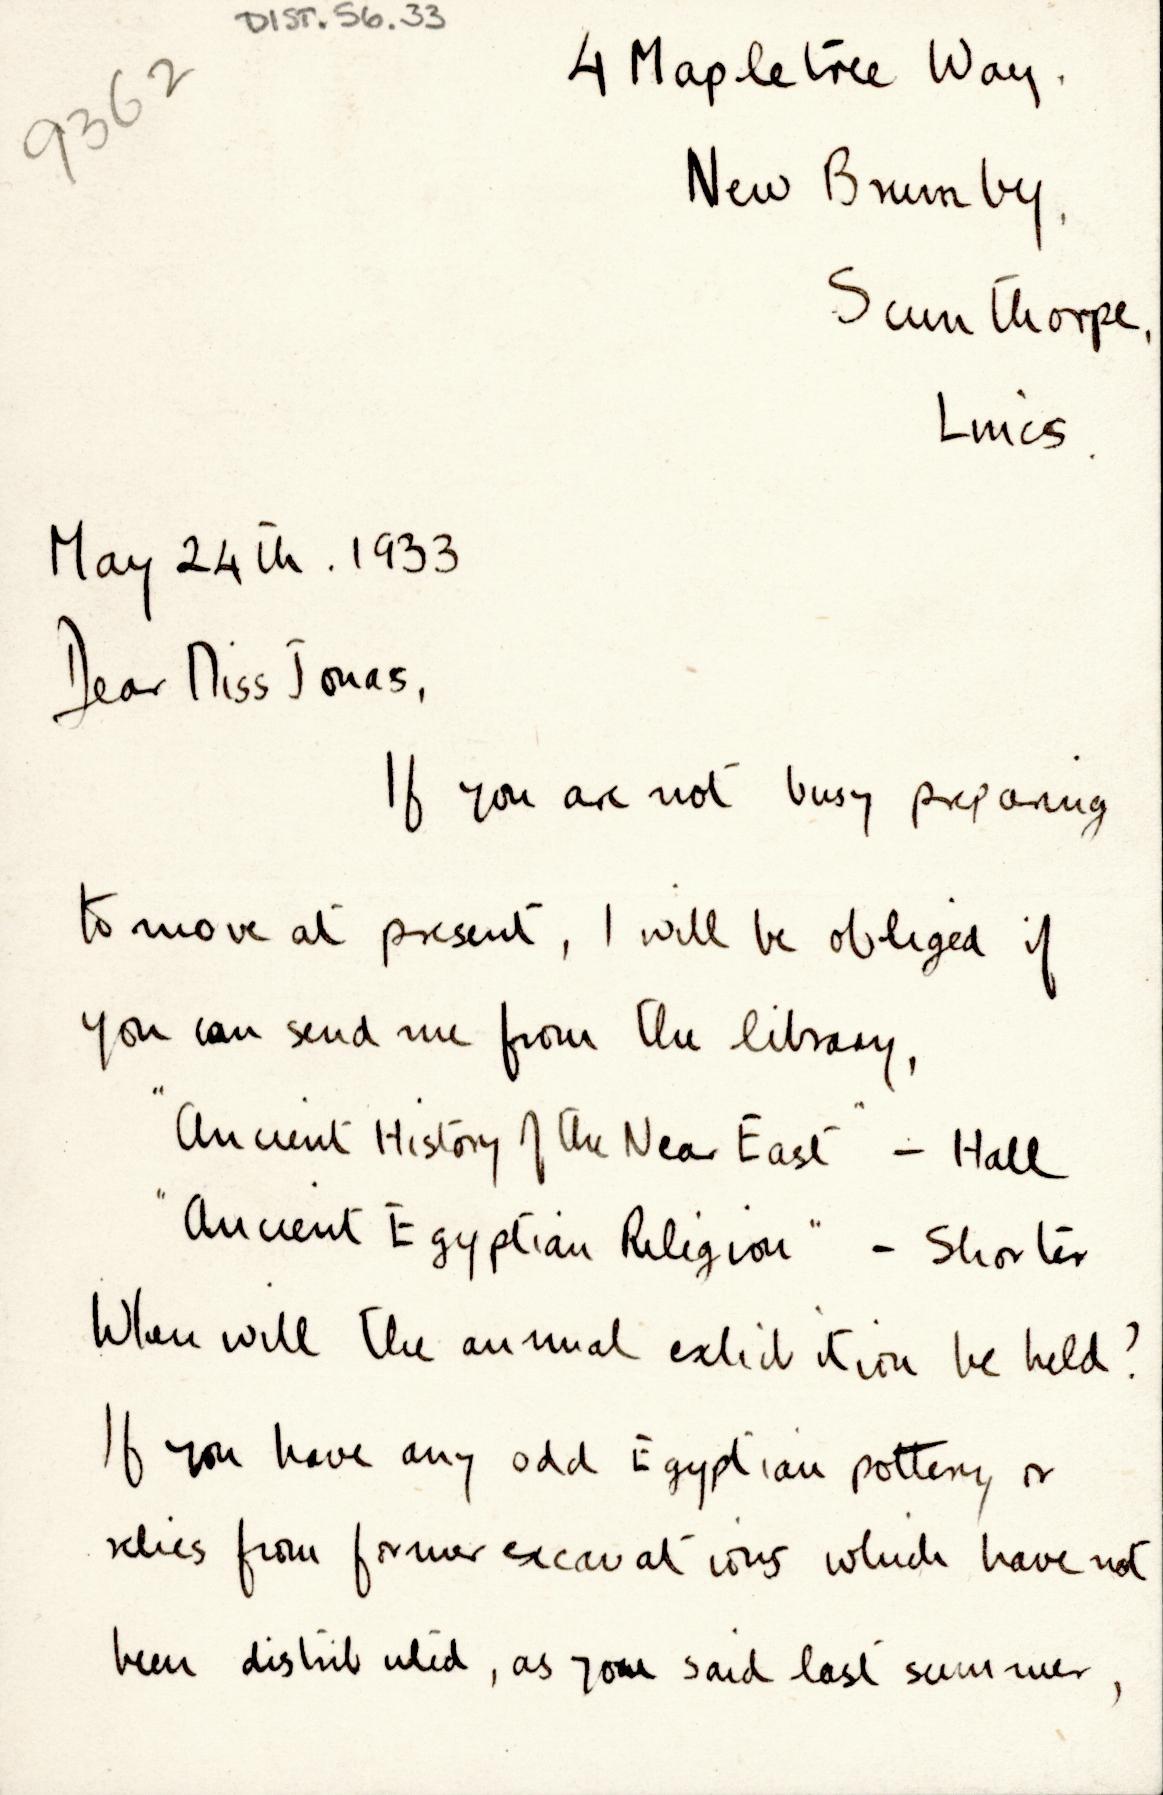 DIST.56.33
9362
4 Mapletree Way.
New Brumby,
Scunthorpe,
Lincs.
May 24th. 1933
Dear Miss Jonas,
If you are not busy preparing
to move at present, I will be obliged if
you can send me from the library,
"Ancient History of the Near East" - Hall
"Ancient Egyptian Religion" - Shorter
When will the annual exhibition be held?
If you have any odd Egyptian pottery or
relics from former excavations which have not
been distributed, as you said last summer,